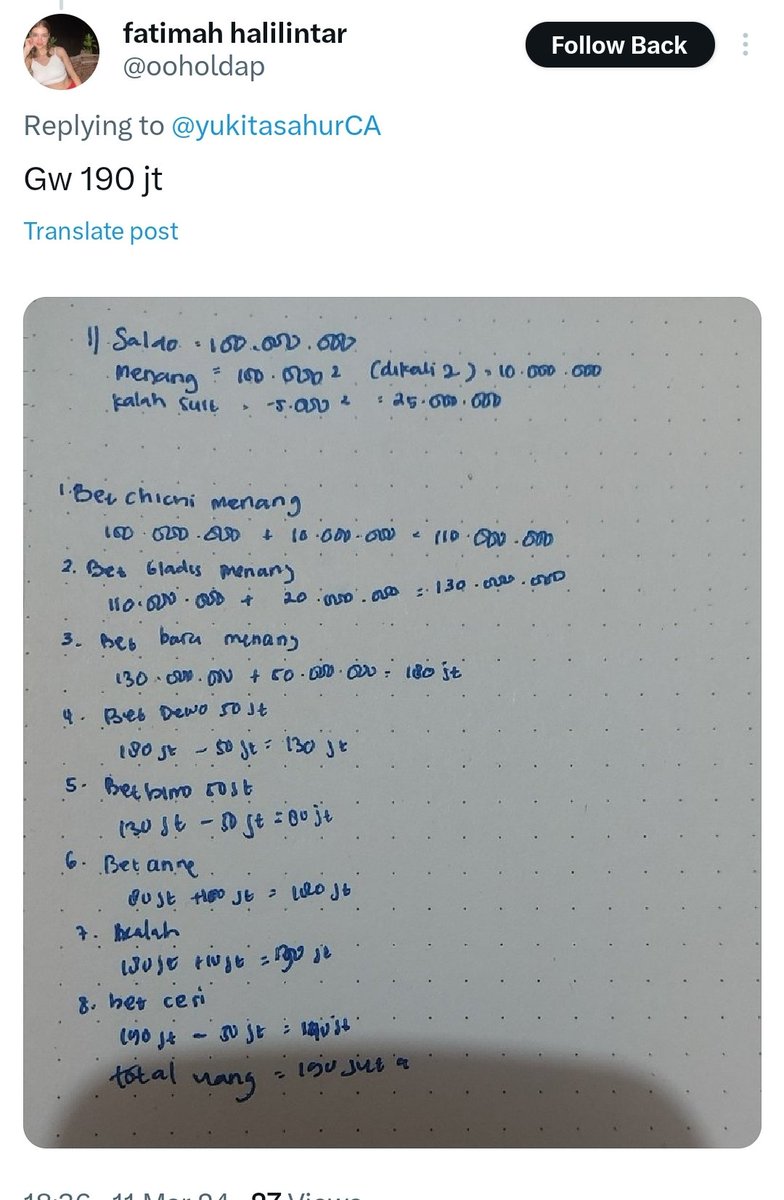 fatimah halilintar
@ooholdap
Follow Back
Replying to @yukitasahurCA
Gw 190 jt
Translate post
1) Saldo = 100.000.000
menang = 100.000² (dikali 2) = 10.000.000
kalah suit = -5.000² = 25.000.000
1. Bet chichi menang
100.000.000 + 10.000.000 = 110.000.000
2. Bet Gladis menang
110.000.000 + 20.000.000 = 130.000.000
3. Bet baru menang
130.000.000 + 50.000.000 = 180 jt
4. Bet Dewo 50 jt
180 jt - 50 jt = 130 jt
5. Bet bimo 50 jt
130 jt - 50 jt = 80 jt
6. Bet anne
80 jt +100 jt = 180 jt
7. kalah
180 jt +10 jt = 190 jt
8. bet ceri
190 jt - 50 jt =
total uang = 190 juta
18:36 · 11 Mar 24 · 97 Views